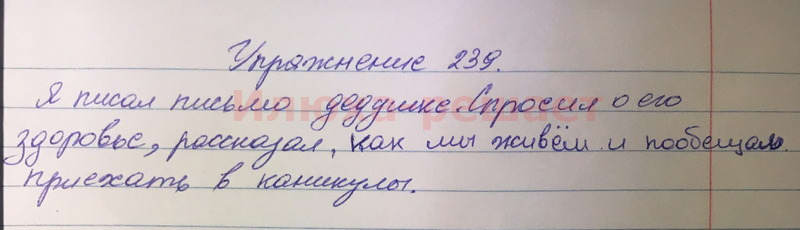 Упражнение 239.
Я писал письмо дедушке. Спросил о его
здоровье, рассказал, как мы живём и пообещал
приехать в каникулы.
Илюха решает